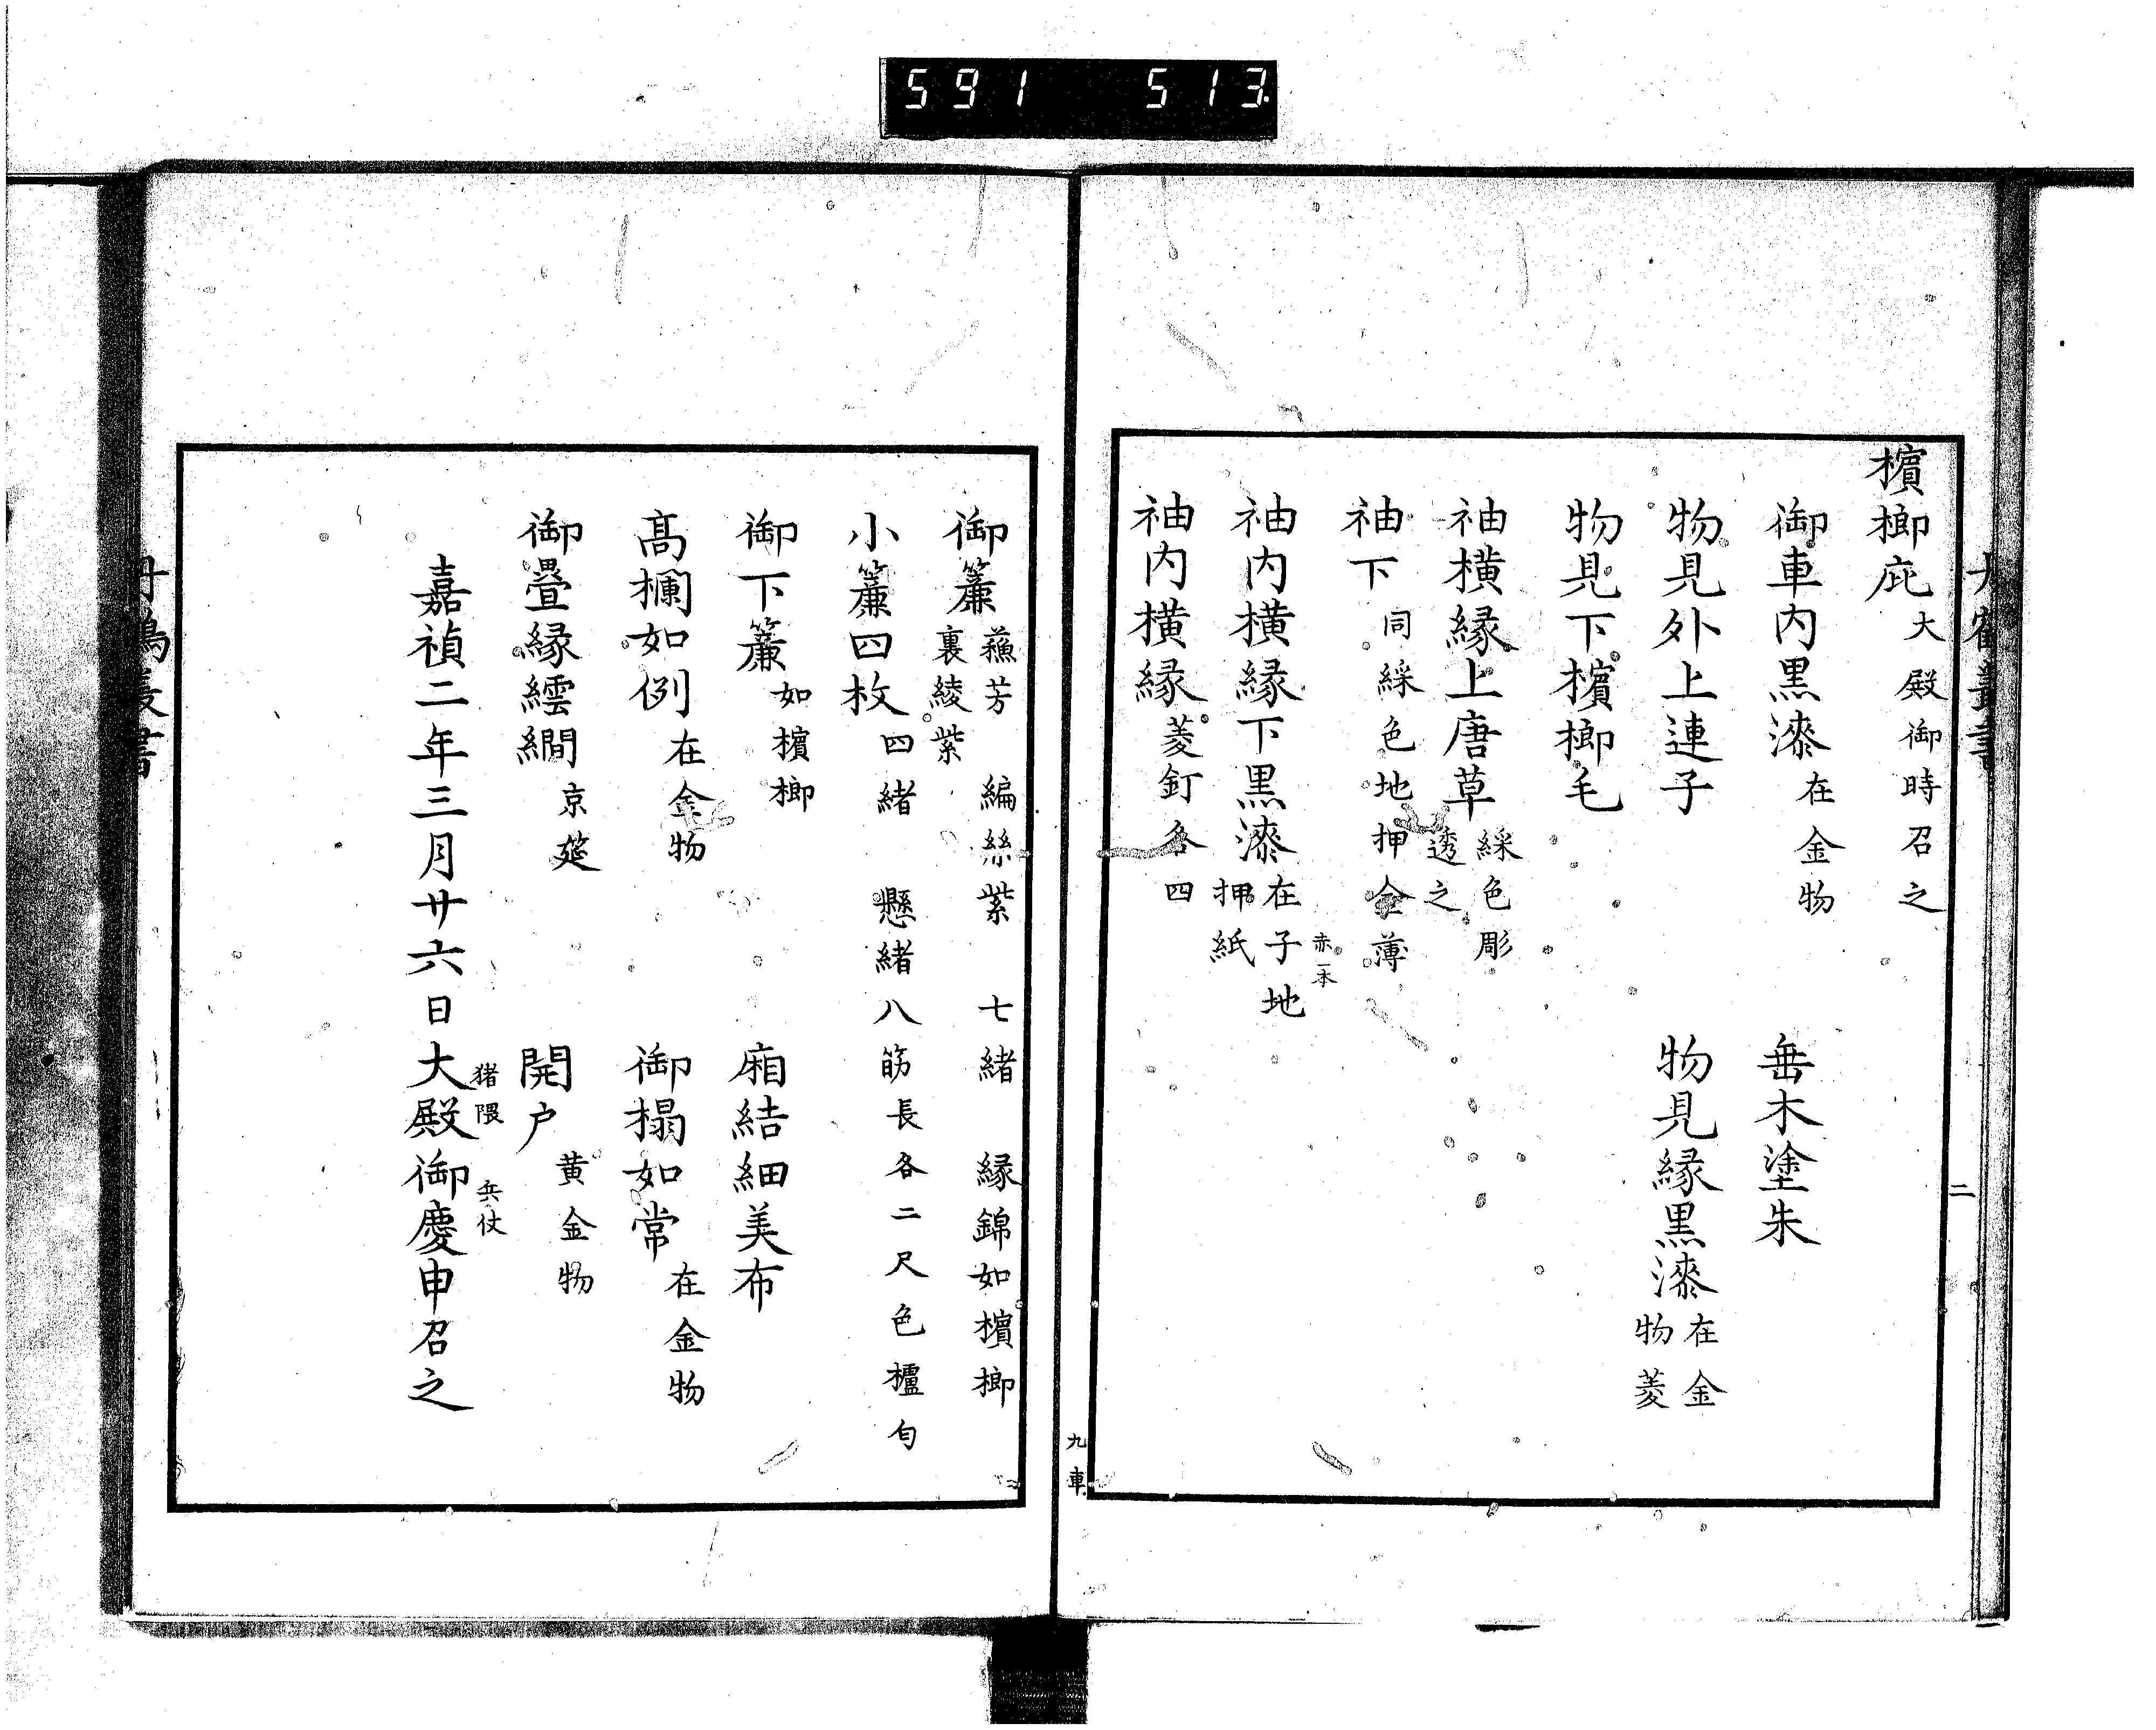 591 513
檳榔庇大殿御時召之
御車内黒漆在金物 垂木塗朱
物見外上連子 物見縁黒漆在金物菱
物見下檳榔毛
袖横縁上唐草綵色彫透之
袖下同綵色地押金薄
袖内横縁下黒漆在子地押紙
赤一本
袖内横縁菱釘各四
二
九車
御簾蘓芳裏綾紫 編絲紫 七緒 縁錦如檳榔
小簾四枚四緒 懸緒八筋長各二尺色櫨匂
御下簾如檳榔 廂結細美布
高欄如例在金物 御榻如常在金物
御疊縁繧繝京莚 開戸黄金物
嘉禎二年三月廿六日大殿御慶申召之
猪隈 兵仗
丹鶴叢書